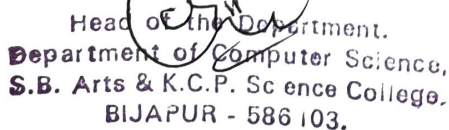 Head of the Department.
Department of Computer Science,
S.B. Arts & K.C.P. Science College.
BIJAPUR - 586103.